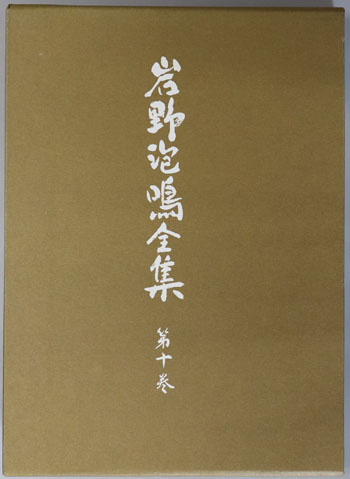 岩野泡鳴全集
第十巻